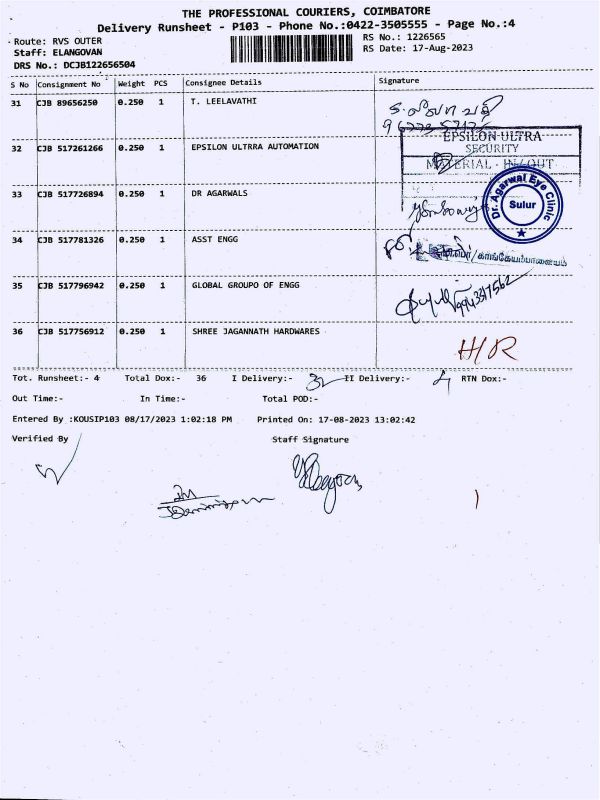 THE PROFESSIONAL COURIERS, COIMBATORE
Delivery Runsheet - P103 - Phone No.:0422-3505555 - Page No.:4
Route: RVS OUTER
RS No.: 1226565
Staff: ELANGOVAN
RS Date: 17-Aug-2023
DRS No.: DCJB122656504
S No Consignment No Weight PCS Consignee Details Signature
31 CJB 89656250 0.250 1 T. LEELAVATHI
32 CJB 517261266 0.250 1 EPSILON ULTRRA AUTOMATION
EPSILON ULTRA
SECURITY
MATERIAL - IN/OUT
33 CJB 517726894 0.250 1 DR AGARWALS
Dr. Agarwal Eye Clinic
Sulur
34 CJB 517781326 0.250 1 ASST ENGG
35 CJB 517796942 0.250 1 GLOBAL GROUPO OF ENGG
36 CJB 517756912 0.250 1 SHREE JAGANNATH HARDWARES
H/R
Tot. Runsheet:- 4 Total Dox:- 36 I Delivery:- 32 II Delivery:- 4 RTN Dox:-
Out Time:- In Time:- Total POD:-
Entered By :KOUSIP103 08/17/2023 1:02:18 PM Printed On: 17-08-2023 13:02:42
Verified By Staff Signature